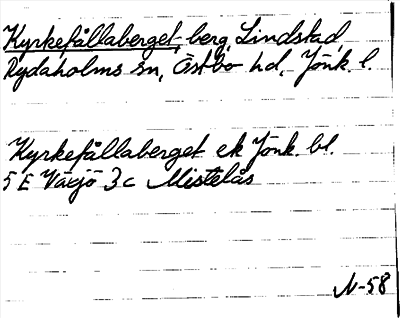 Kyrkefållaberget, berg, Lindstad,
Rydaholms sn, Östbo hd, Jönk. l.
Kyrkefållaberget ek Jönk. bl.
5 E Växjö 3c Mistelås
N-58